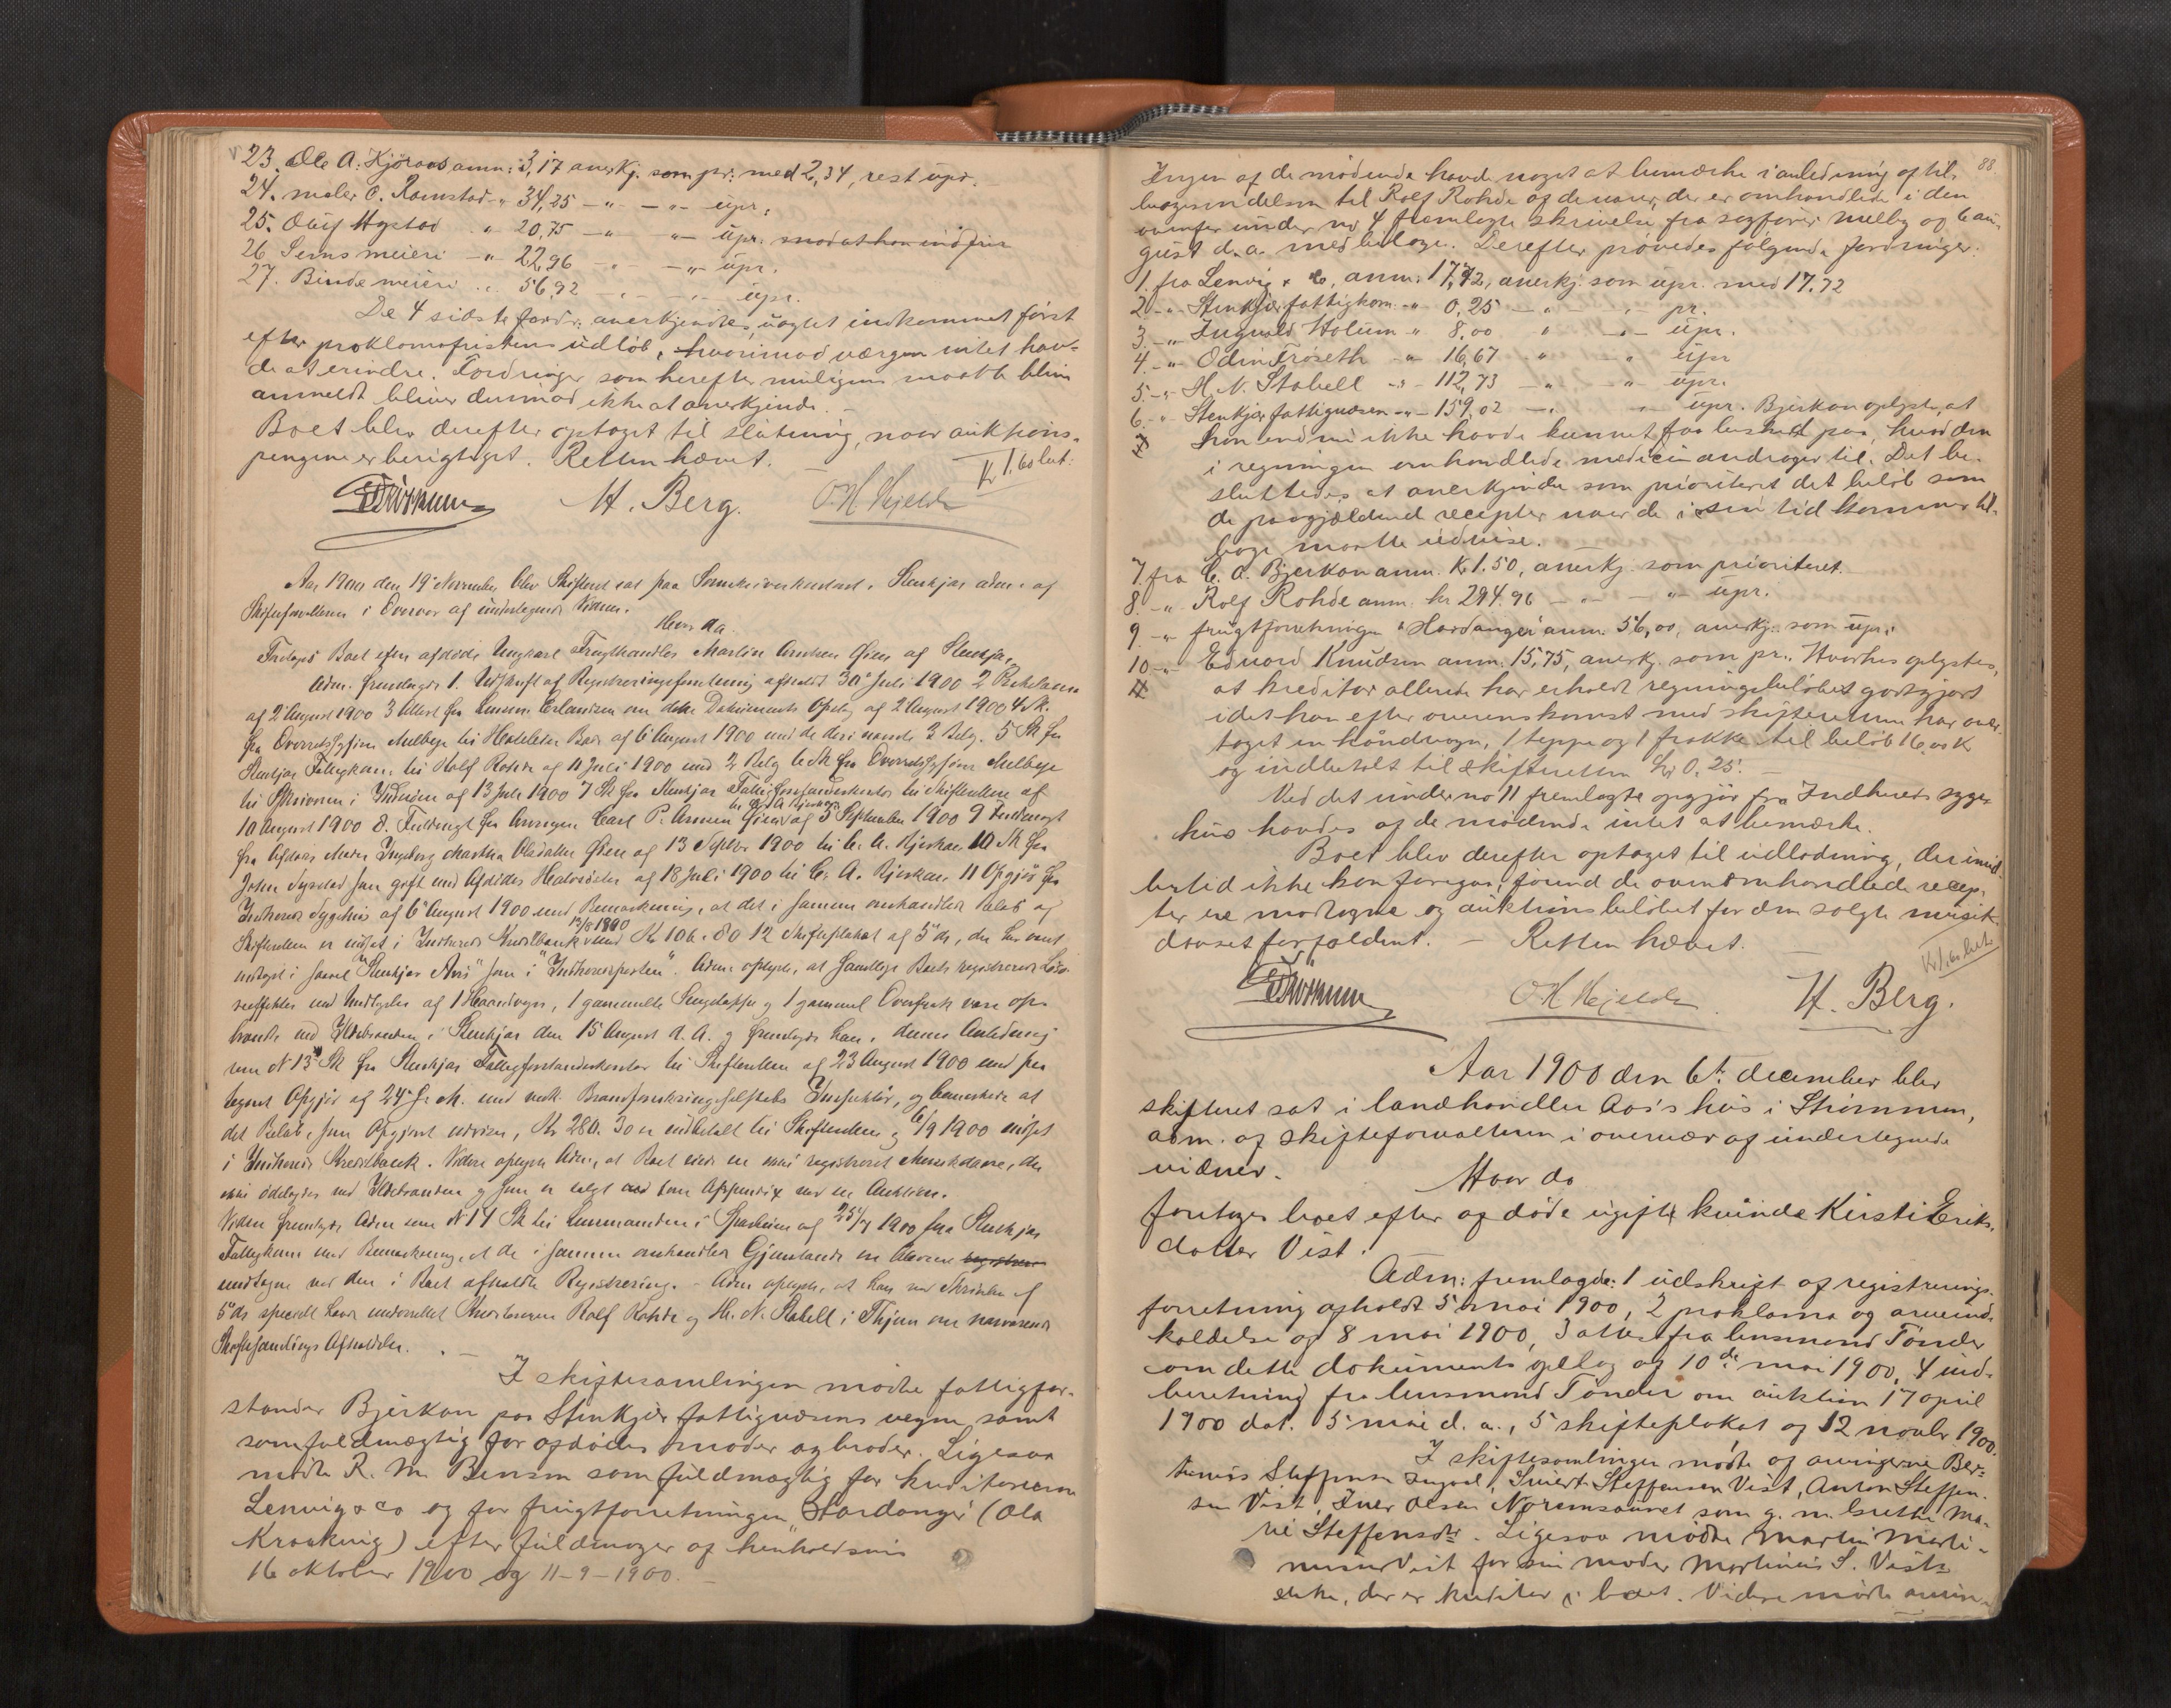 23. Ole A. Kjöraas anm: 3,17 anerkj. som pr: med 2,34, rest upr.
24. maler O. Ramstad -"- 34,25 -"- -"- upr.
25. Oluf Hystad " 20,75 -"- "- upr.
26. Sems meieri -"- 22,96 -"- upr.
27. Binde meieri 56,92 upr.
De 4 sidste fordr. anerkjendtes, uagtet indkommet först
efter proklamafristens udlöb, hvorimod værgen intet hav-
de at erindre. Fordringer som herefter muligens maatte blive
anmeldt bliver derimod ikke at anerkjende.
Boet blev derefter optaget til slutning, naar auktions-
pengene er berigtiget. Retten hævet.
Kr 1.60 bet.
H. Berg. O. H. Hjelde
Aar 1900 den 19 November blev Skifteret sat paa i Stenkjær adm. af
Skifteforvalteren i Overvær af undertegnede Vidner.
Hvor da
Foretages Boet efter afdöde Ungkarl Frugthandler Martin Öien af Stenkjær.
Adm. fremlagde 1. Udskrift af Registreringsforretning afholdt 30 Juli 1900 2 Proklama
af 2 August 1900 3 Attest fra Lensmand Erlandsen om dette Dokuments Opslag af 2 August 1900 4 Sk.
fra Overretssagförer Melbye til Rohde af 6 August 1900 med de deri nævnte 2 Bilag. 5 Sk fra
Stenkjær Fattigkom. til Rolf Rohde af 11 Juli 1900 med 2 Bilag 6 Sk fra Overretssagförer Melbye
til Skriveren i Inderöen af 13 Juli 1900 7 Sk fra Stenkjær Fattigforstanderkontor til Skifteretten af
10 August 1900 8. Fuldmagt fra Arvingen Carl P. Öien af 5 September 1900 9 Fuldmagt
fra Afdödes Moder Ingeborg Martha Öien af 13 Septbr 1900 til C. A. Bjerkan 10 Sk fra
John som gift med Afdödes Halvsöster af 18 Juli 1900 til C. A. Bjerkan 11 Opgjör fra
Indherreds Sygehus af 6 August 1900 med Bemærkning, at det i samme omhandlede Belöb af
Skifteretten er indsat i Indherreds Kreditbank 13/8 1900 med Kr 106.80 12 Skifteplakat af 5 ds, der har været
indtaget i saavel "Stenkjær Avis" som i "Indherredsposten". Adm. oplyste, at samtlige Boets registrerede Lös-
öreeffekter med Undtagelse af 1 Haandvogn, 1 gammelt Sengetæppe og 1 gammel Overfrak vare op-
brændt ved Ildebranden i Stenkjær den 15 August d. A. og fremlagde han i denne Anledning
som No 13 Sk fra Stenkjær Fattigforstanderkontor til Skifteretten af 23 August 1900 med paa-
tegnet Opgjör af 24 s. M. med vedk. Brandforsikringsselskabs Inspektör, og bemærkede at
det Belöb, som Opgjöret udviser, Kr 280.30 er indbetalt til Skifteretten og 6/9 1900 indsat
i Indherreds Kreditbank. Videre oplyste Adm., at Boet eiede en ikke registreret Musikdaase, der
ikke ödelagdes ved Ildebranden og som er solgt ved en Auktion.
Videre fremlagde Adm som No 14 Sk til Lensmanden i Sparbuen af 25/7 1900 fra Stenkjær
Fattigkom. med Bemærkning, at de i samme omhandlede Gjenstande
undtagne ved den i Boet afholdte Registrering. - Adm oplyste, at han ved Skrivelse af
5 ds specielt havde underrettet Kreditorerne Rolf Rohde og H. N. Stabell i Thjem om nærværende
Skiftesamlings Afholdelse.
I skiftesamlingen mödte fattigfor-
stander Bjerkan paa Stenkjær fattigvæsens vegne, samt
som fuldmægtig for afdödes moder og broder. Ligesaa
mödte R. M. Benson som fuldmægtig for kreditorerne
Lenvig & co og for frugtforretningen Hardanger (Ola
Kraakvig) efter fuldmagter af henholdsvis
16 oktober 1900 og 11-9-1900.
88
Ingen af de mödende havde noget at bemærke i anledning af til-
bagesendelsen til Rolf Rohde af de varer, der er omhandlede i den
ovenfor under no 4 fremlagte skrivelse fra sagförer Melby af 6 au-
gust d. a. med bilage. Derefter prövedes fölgende fordringer:
1. fra Lenvig & Co, anm: 17,72, anerkj. som upr. med 17.72
2 -"- Stenkjær fattigkom. -"- 0,25 -"- pr.
3. -"- Ingvald Holum " 8,00 " -"- upr.
4. -"- Odin Fröseth -"- 16,67 " " upr
5. -"- H. N. Stabell -"- 112,73 -"- -"- upr.
6. -"- Stenkjær fattigvæsen -"- 159,02 -"- upr. Bjerkan oplyste, at
han endnu ikke havde kunnet faa besked paa, hvad den
i regningen omhandlede medicin andrager til. Det be-
sluttedes at anerkjende som prioriteret det belöb som
de paagjældende recepter naar de i sin tid kommer til-
bage maatte udvise.
7. fra C. A. Bjerkan anm. Kr 1.50, anerkj. som prioriteret.
8. -"- Rolf Rohde anm. kr 294.96 -"- -"- upr.
9 -"- frugtforretningen "Hardanger" anm. 56,00, anerkj. som upr.
10 -"- Edvard Knudsen anm. 15,75, anerkj. som pr. Hvorhos oplystes,
at kreditor allerede har erholdt regningsbelöbet godtgjort
idet han efter overenskomst med skifteretten har over-
taget en håndvogn, 1 teppe og 1 frakke til belöb 16.00 Kr
og indbetalt til skifteretten kr 0,25.
Ved det under no 11 fremlagte opgjör fra Indherreds syge-
hus havdes af de mödende intet at bemærke.
Boet blev derefter optaget til udlodning, der imid-
lertid ikke kan foregaa, förend de ovenomhandlede recep-
ter ere modtagne og auktionsbelöbet for den solgte musik-
daase forfaldent. - Retten hævet.
Kr 1.60 bet.
O. H. Hjelde H. Berg.
Aar 1900 den 6te december blev
skifteret sat i landhandler Aas's hus i Strömmen,
adm. af skifteforvalteren i overvær af undertegnede
vidner.
Hvor da
foretages boet efter afdöde ugifte kvinde Kirsti Eriks-
datter Vist.
Adm: fremlagde: 1 udskrift af registrerings-
forretning afholdt 5 mai 1900, 2 proklama og arveind-
kaldelse af 8 mai 1900, 3 attest fra lensmand Tönder
om dette dokuments oplæg af 10de mai 1900, 4 ind-
beretning fra lensmand Tönder om auktion 17 april
1900 dat. 5 mai d. a., 5 skifteplakat af 12 novbr 1900.
I skiftesamlingen mödte af arvingerne Ber-
Steffensen Sivert Steffensen Vist, Anton Steffen-
sen Vist, Iver Olsen som g. m. Grethe Ma-
rie Steffensdtr. Ligesaa mödte Martin Marti-
nussen Vist for sin moder Martinus S. Vists
enke, der er kreditor i boet. Videre mödte